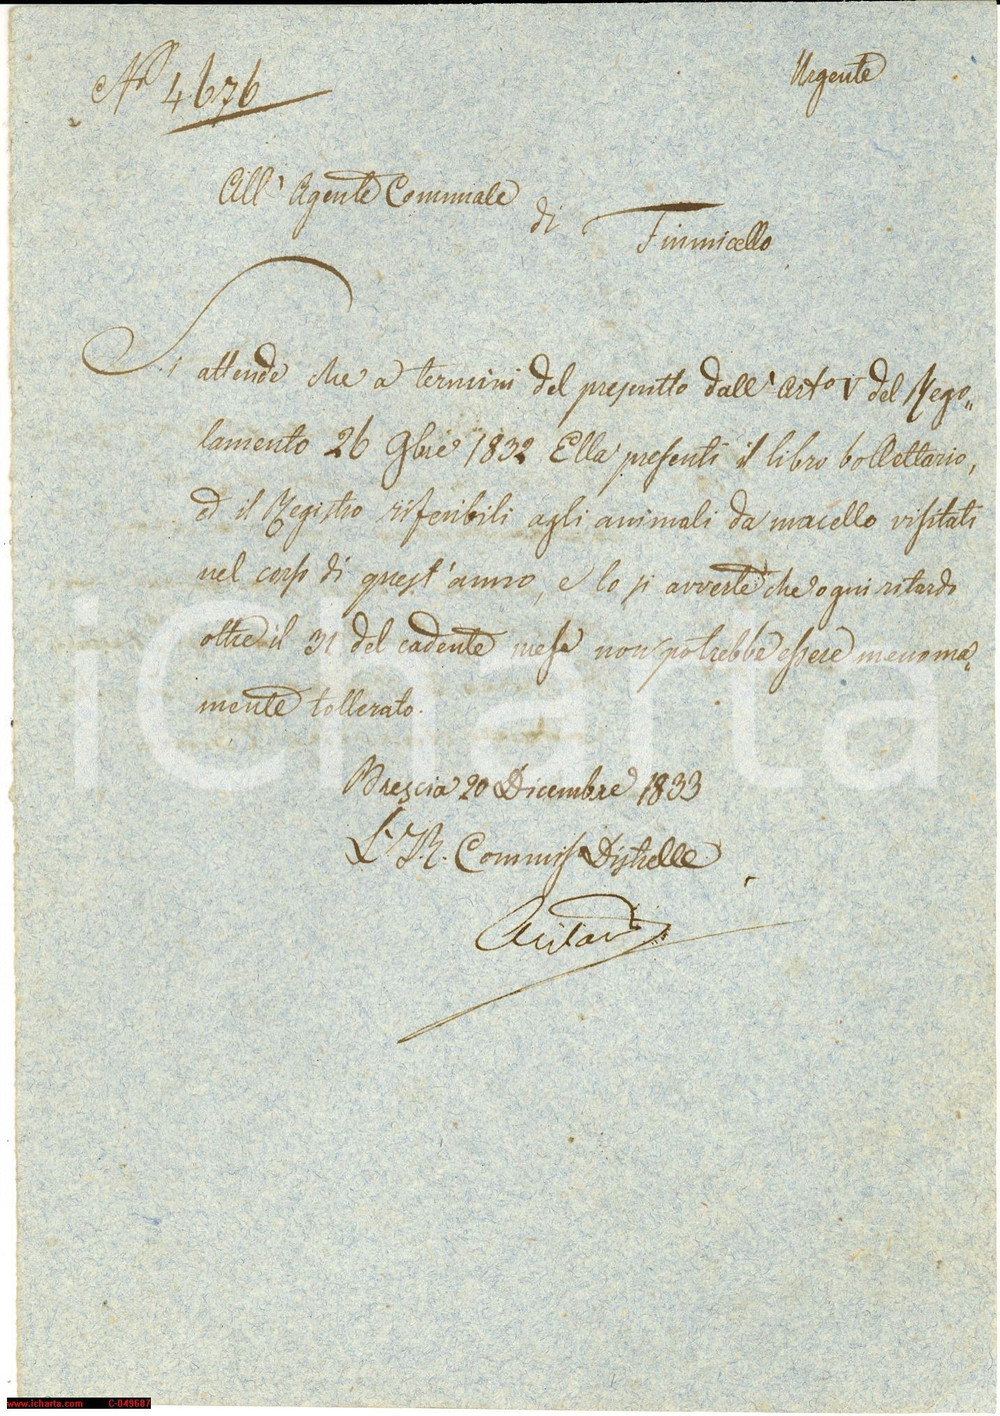 N° 4676
Urgente
All' Agente Comunale
di Fiumicello
Si attende che a termini del prescritto dall' Arto V del Rego„
lamento 26 9bre 1832 Ella presenti il libro bollettario,
ed il Registro riferibili agli animali da macello visitati
nel corso di quest' anno, e lo si avverte che ogni ritardo
oltre il 31 del cadente mese non potrebbe essere menoma„
mente tollerato.
Brescia 20 Dicembre 1833
L' I. R. Commiss° Distrlle
iCharta
www.icharta.com C-049687